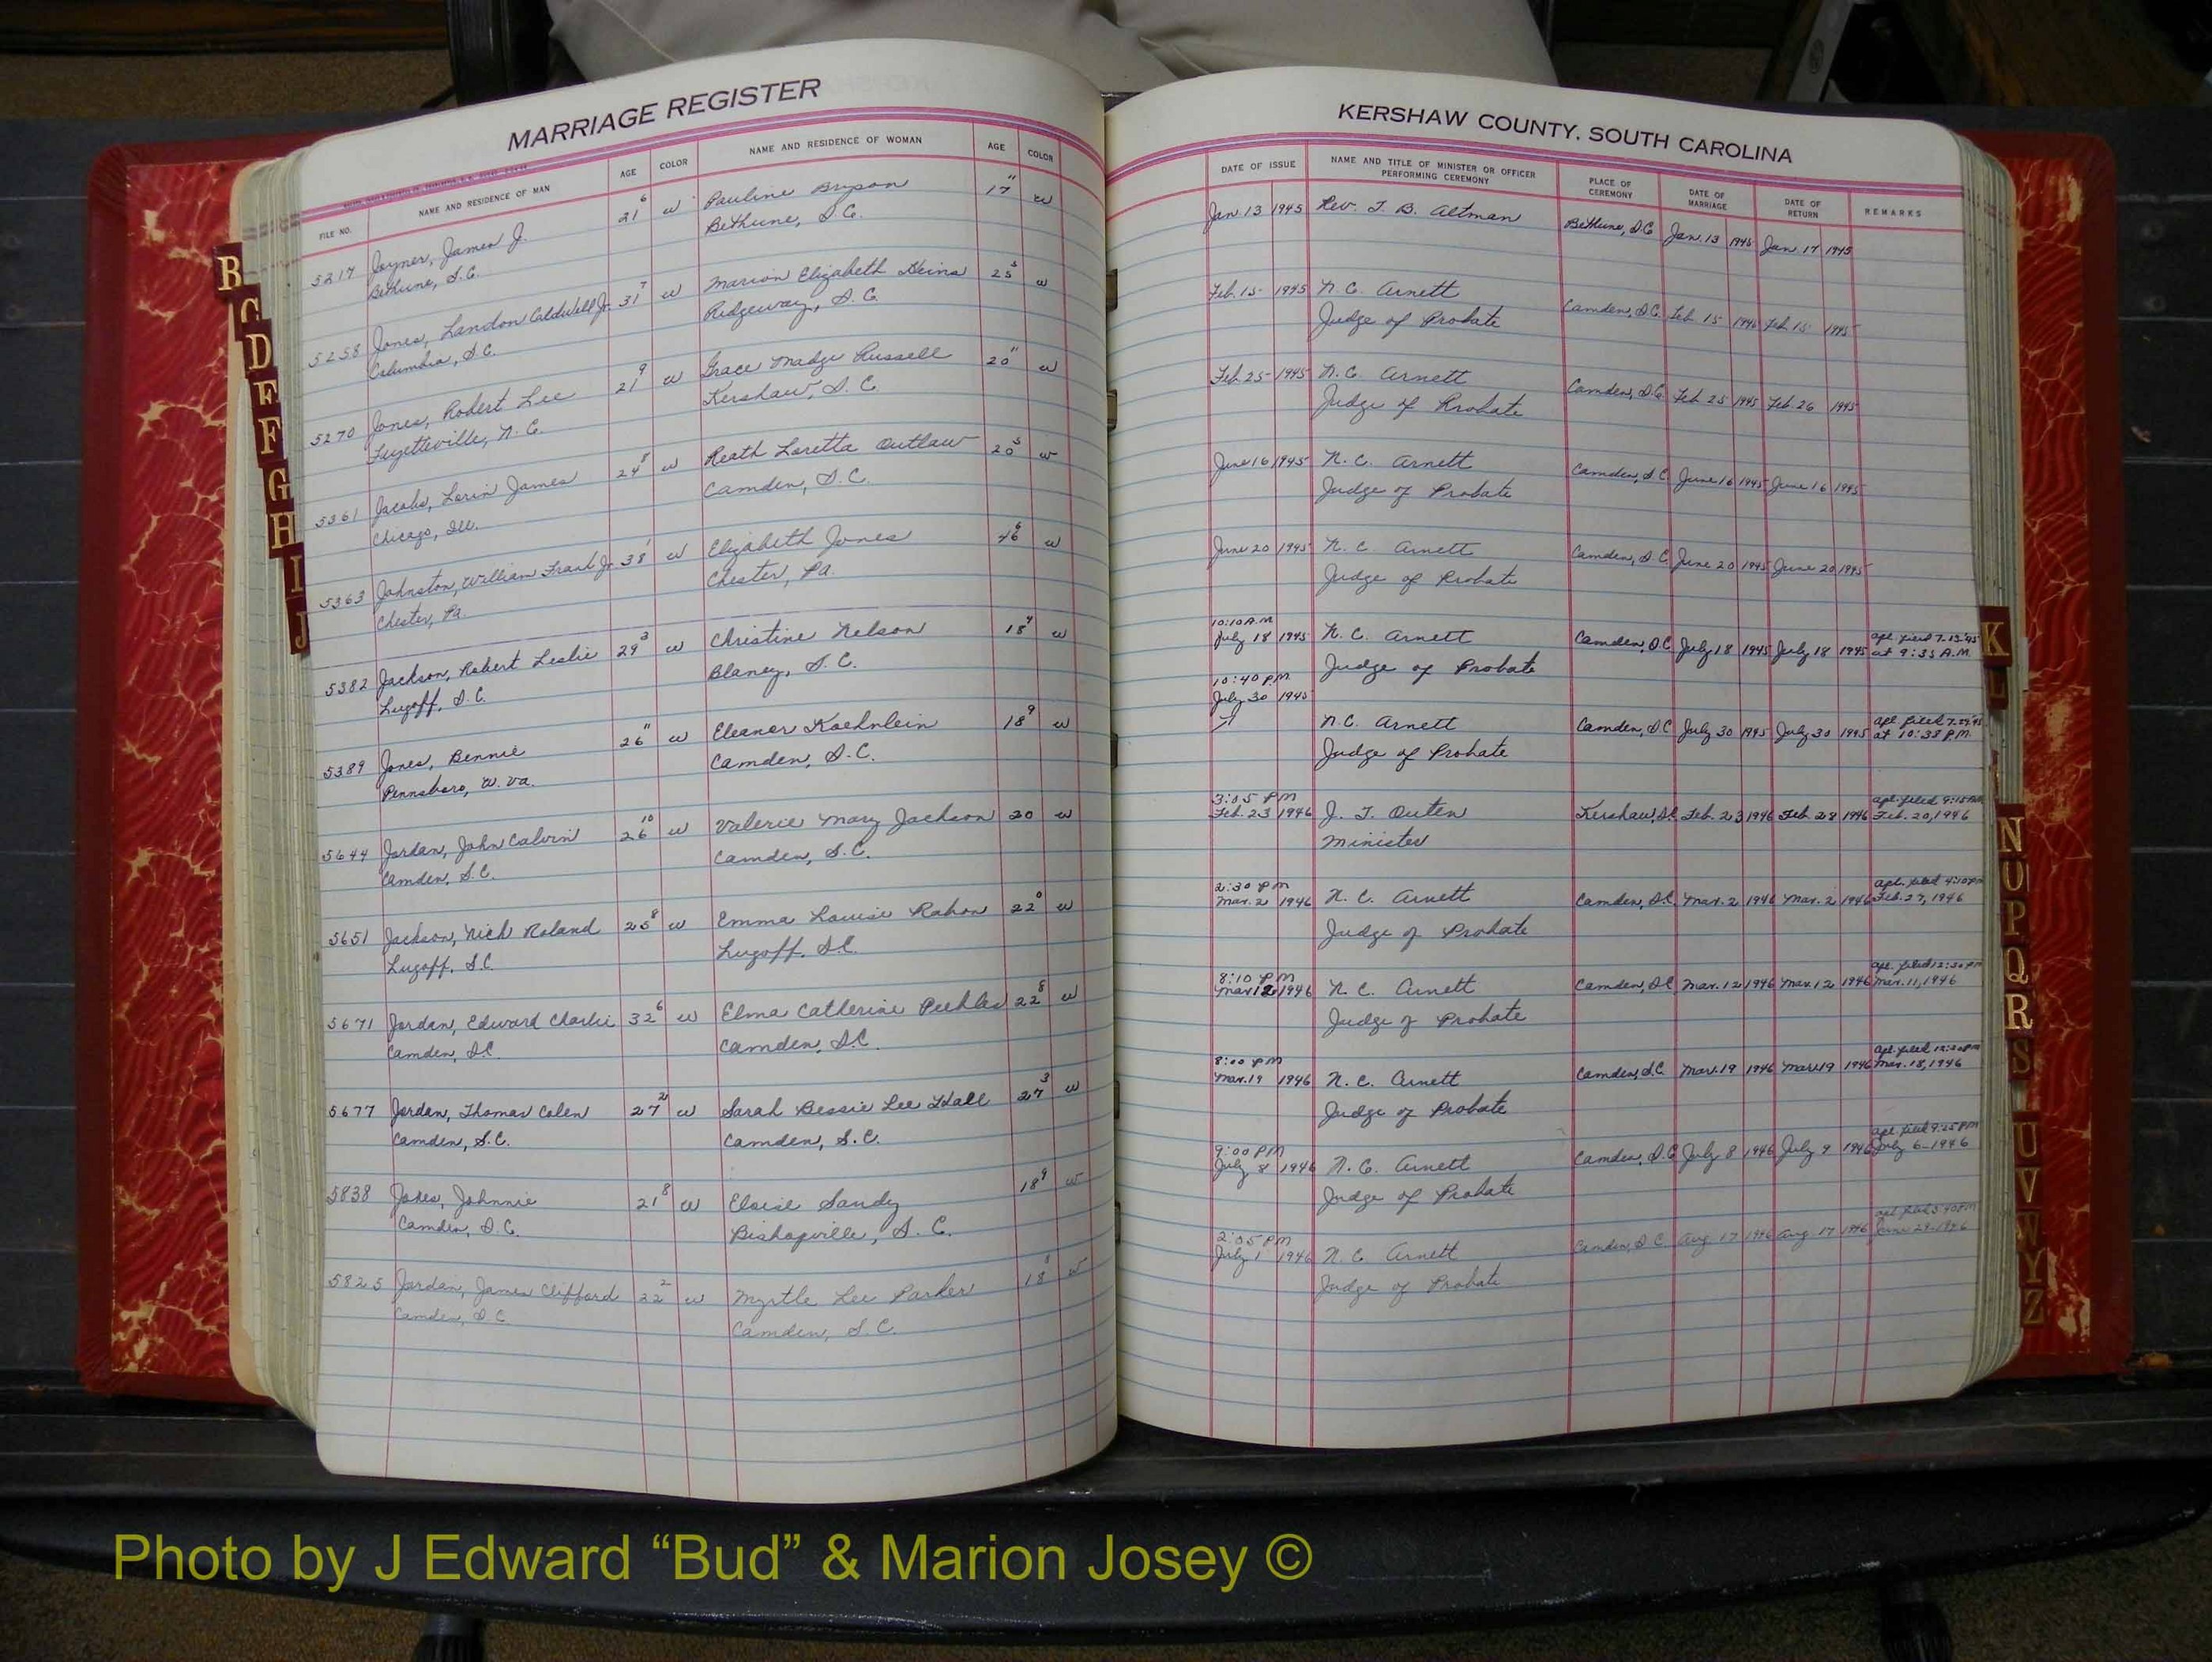 MARRIAGE REGISTER
FILE NO. NAME AND RESIDENCE OF MAN AGE COLOR NAME AND RESIDENCE OF WOMAN AGE COLOR
5217 Joyner, James J. 21 6 w Pauline Bryson 17 11 w
Bethune, S.C. Bethune, S.C.
5258 Jones, Landon Caldwell Jr. 31 7 w Marion Elizabeth Heins 25 5 w
Columbia, S.C. Ridgeway, S.C.
5270 Jones, Robert Lee 21 9 w Grace Madge Russell 20 11 w
Fayetteville, N.C. Kershaw, S.C.
5361 Jacobs, Lorin James 24 8 w Reath Loretta Outlaw 20 5 w
Chicago, Ill. Camden, S.C.
5363 Johnston, William Frank Jr. 38 1 w Elizabeth Jones 46 6 w
Chester, Pa. Chester, Pa.
5382 Jackson, Robert Leslie 29 3 w Christine Nelson 18 4 w
Lugoff, S.C. Blaney, S.C.
5389 Jones, Bennie 26 11 w Eleanor Koehnlein 18 9 w
Pennsboro, W. Va. Camden, S.C.
5644 Jordan, John Calvin 26 10 w Valerie Mary Jackson 20 w
Camden, S.C. Camden, S.C.
5651 Jackson, Nick Roland 25 8 w Emma Louise Rabon 22 0 w
Lugoff, S.C. Lugoff, S.C.
5671 Jordan, Edward Charlie 32 6 w Elma Catherine Peebles 22 8 w
Camden, S.C. Camden, S.C.
5677 Jordan, Thomas Colen 27 2 w Sarah Bessie Lee Hall 27 3 w
Camden, S.C. Camden, S.C.
5838 Jones, Johnnie 21 8 w Eloise Sandy 18 9 w
Camden, S.C. Bishopville, S.C.
5825 Jordan, James Clifford 22 2 w Myrtle Lee Parker 18 8 w
Camden, S.C. Camden, S.C.
KERSHAW COUNTY, SOUTH CAROLINA
DATE OF ISSUE NAME AND TITLE OF MINISTER OR OFFICER PERFORMING CEREMONY PLACE OF CEREMONY DATE OF MARRIAGE DATE OF RETURN REMARKS
Jan. 13 1945 Rev. T. B. Altman Bethune, S.C. Jan. 13 1945 Jan. 17 1945
Feb. 15 1945 N. C. Arnett Camden, S.C. Feb. 15 1945 Feb. 15 1945
Judge of Probate
Feb. 25 1945 N. C. Arnett Camden, S.C. Feb. 25 1945 Feb. 26 1945
Judge of Probate
June 16 1945 N. C. Arnett Camden, S.C. June 16 1945 June 16 1945
Judge of Probate
June 20 1945 N. C. Arnett Camden, S.C. June 20 1945 June 20 1945
Judge of Probate
10:10 A.M.
July 18 1945 N. C. Arnett Camden, S.C. July 18 1945 July 18 1945 apl. filed 7-13-'45
Judge of Probate at 9:35 A.M.
10:40 P.M.
July 30 1945
N. C. Arnett Camden, S.C. July 30 1945 July 30 1945 apl. filed
Judge of Probate at 10:38 P.M.
3:05 PM
Feb. 23 1946 J. T. Outen Kershaw, S.C. Feb. 23 1946 Feb. 28 1946 apl. filed
Minister Feb. 20, 1946
2:30 PM
Mar. 2 1946 N. C. Arnett Camden, S.C. Mar. 2 1946 Mar. 2 1946 apl. filed 4:10 PM
Judge of Probate Feb. 27, 1946
8:10 PM
Mar 12 1946 N. C. Arnett Camden, S.C. Mar. 12 1946 Mar. 12 1946 apl. filed 12:30 PM
Judge of Probate Mar. 11, 1946
8:00 PM
Mar. 19 1946 N. C. Arnett Camden, S.C. Mar. 19 1946 Mar 19 1946 apl. filed
Judge of Probate Mar. 18, 1946
9:00 PM
July 8 1946 N. C. Arnett Camden, S.C. July 8 1946 July 9 1946 apl. filed 9:25 PM
Judge of Probate July 6-1946
2:05 PM
July 1 1946 N. C. Arnett Camden, S.C. Aug. 17 1946 Aug. 17 1946 apl. filed
Judge of Probate June 29-1946
B
C
D
E
F
G
H
I
J
K
L
N
O
P
Q
R
S
U
V
W
Y
Z
Photo by J Edward “Bud” & Marion Josey ©